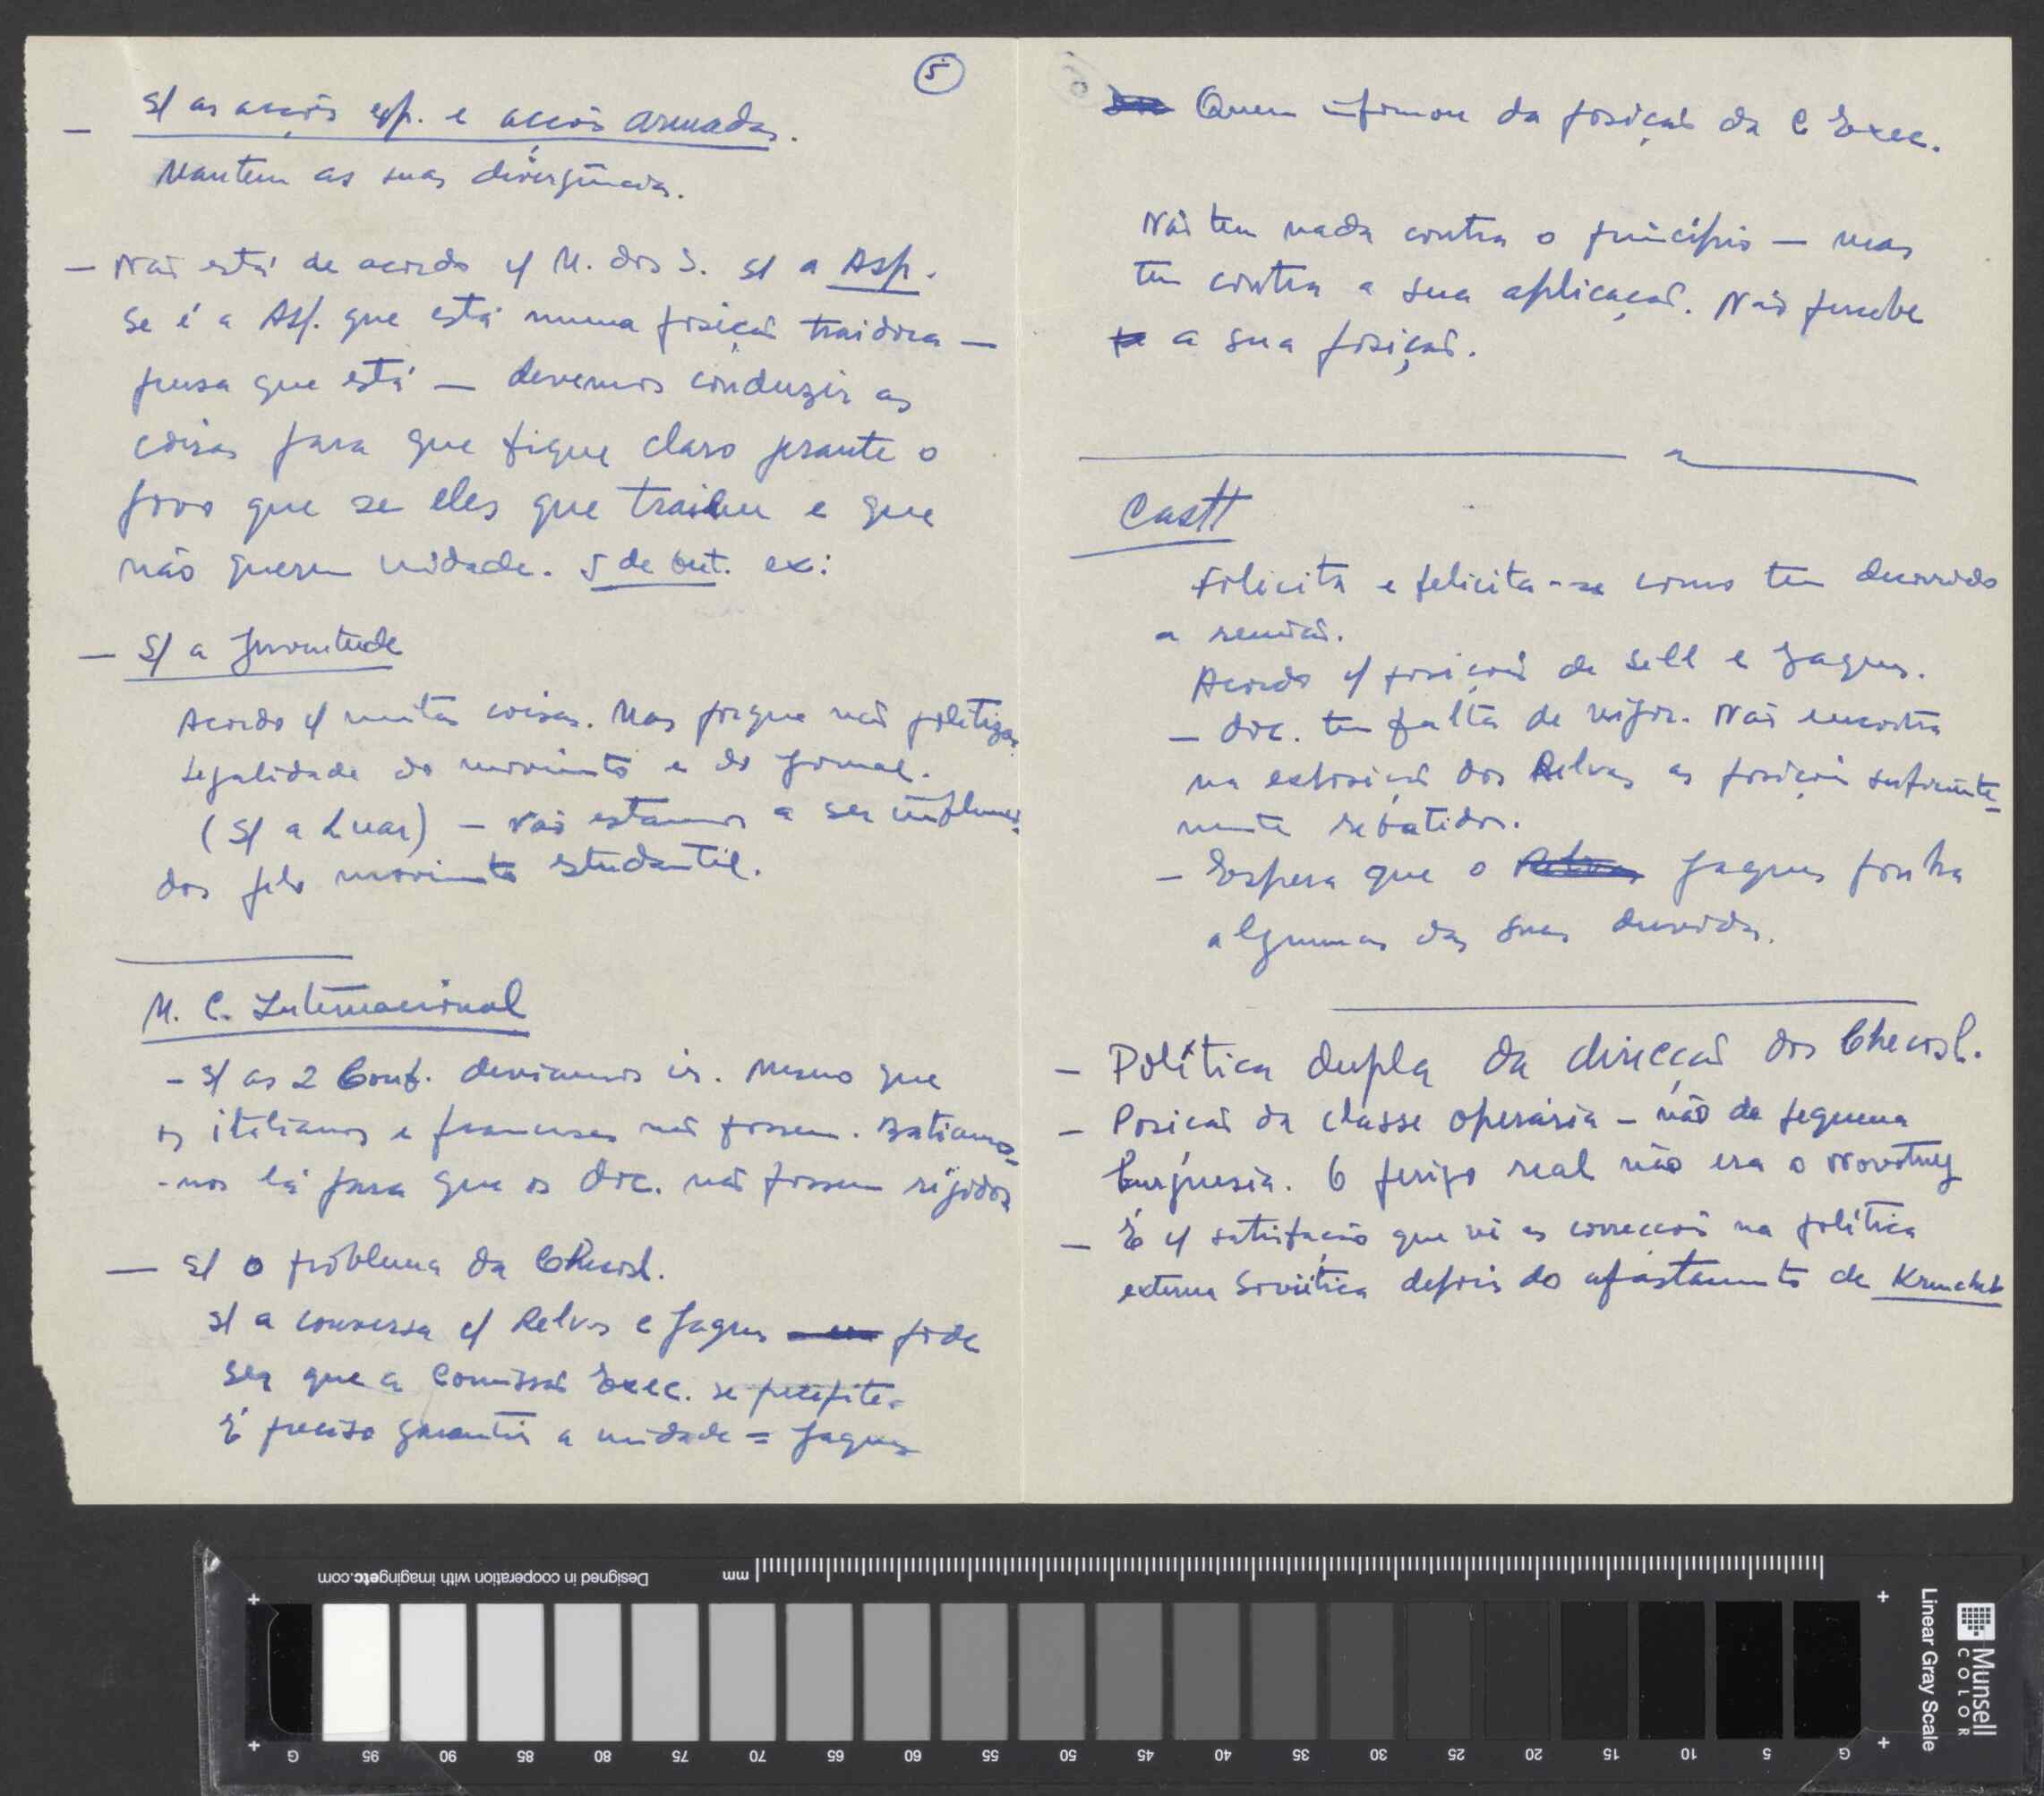 5
— s/ as acções esp. e acções armadas.
Mantem as suas divergências.
— Não está de acordo c/ M. dos S. s/ a Asp.
Se é a Asp. que está numa posição traidora —
pensa que está — devemos conduzir as
coisas para que fique claro perante o
povo que se eles que traem e que
não querem unidade. 5 de Out. ex:
— S/ a Juventude
Acordo c/ muitas coisas. Mas porque não politizar
Legalidade do movimento e do jornal.
(S/ a Luar) — Não estamos a ser influen-
dos pelo movimento estudantil.
M. C. Internacional
- s/ as 2 Conf. deviamos ir. Mesmo que
os italianos e franceses não fossem. Batiamo-
-nos lá para que os doc. não fossem rígidos
— s/ o problema da Checosl.
s/ a conversa c/ Relvas e Jaques pode
ser que a Comissão Exec. se precipite.
É preciso garantir a unidade = Jaques
Quem informou da posição da C Exec.
Não tem nada contra o princípio — mas
tem contra a sua aplicação. Não percebe
a sua posição.
Castt
Felicita e felicita-se como tem decorrido
a reunião.
Acordo c/ posições de Sell e Jaques.
— doc. tem falta de vigor. Não encontra
na exposição dos Relvas as posições suficiente-
mente rebatidos.
— Espera que o Relvas Jaques ponha
algumas das suas duvidas.
— Política dupla da direcção dos Checosl.
— Posicão da classe operária — não da pequena
burguesia. O perigo real não era o Novotny
— É c/ satisfação que vê as correcções na política
externa Soviética depois do afastamento de Kruchet
Designed in cooperation with imagingetc.com
mm
G 95 90 85 80 75 70 65 60 55 50 45 40 35 30 25 20 15 10 5 G
Munsell
COLOR
Linear Gray Scale